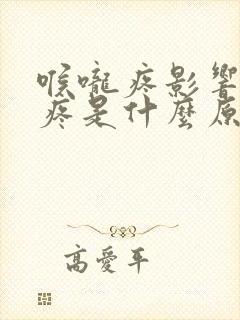 喉嚨疼影響
疼是什麼原
高愛平